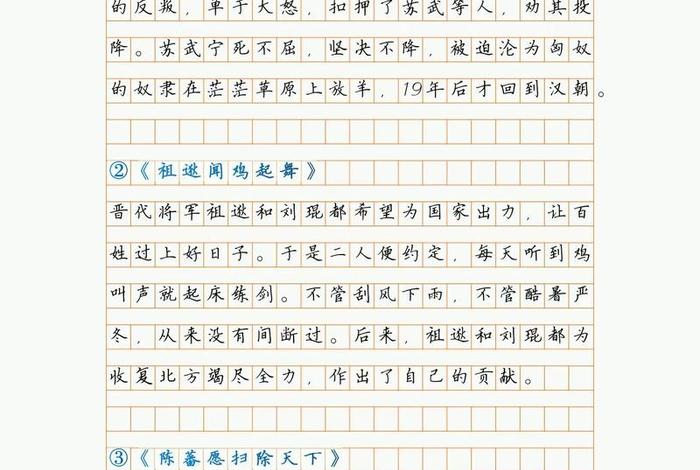 的反叛，单于大怒，扣押了苏武等人，劝其投
降。苏武宁死不屈，坚决不降，被迫沦为匈奴
的奴隶在茫茫草原上放羊，19年后才回到汉朝。
②《祖逖闻鸡起舞》
晋代将军祖逖和刘琨都希望为国家出力，让百
姓过上好日子。于是二人便约定，每天听到鸡
叫声就起床练剑。不管刮风下雨，不管酷暑严
冬，从来没有间断过。后来，祖逖和刘琨都为
收复北方竭尽全力，作出了自己的贡献。
③《陈蕃愿扫除天下》